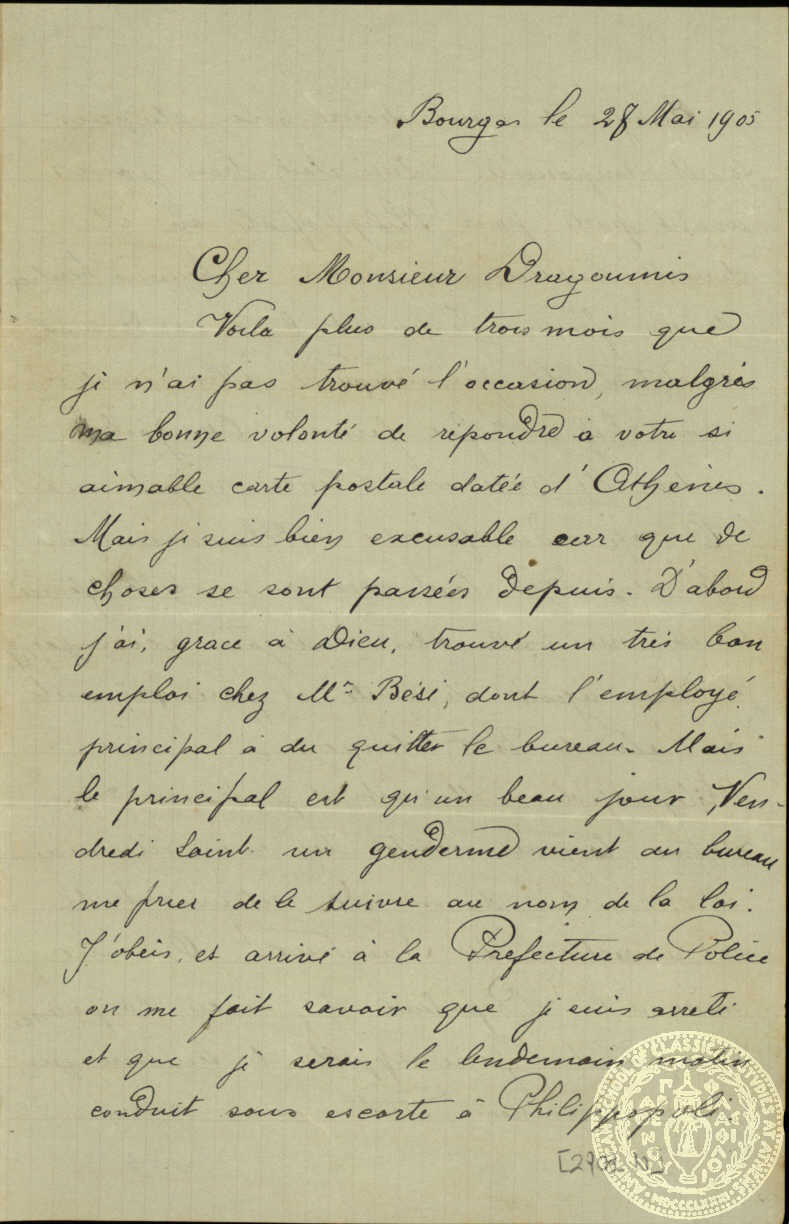 Bourgas le 28 Mai 1905
Cher Monsieur Dragoumis
Voila plus de trois mois que
je n'ai pas trouvé l'occasion, malgrés
ma bonne volonté de répondre à votre si
aimable carte postale datée d'Athenes.
Mais je suis bien excusable car que de
choses se sont passées depuis. D'abord
j'ai, grace à Dieu, trouvé un très bon
emploi chez Mr Bési, dont l'employé
principal à du quitter le bureau. Mais
le principal est qu'un beau jour, Ven-
dredi Saint un genderme vient au bureau
me prier de le suivre au nom de la loi.
J'obéis, et arrivé à la Préfecture de Police
on me fait savoir que je suis arreté
et que je serais le lendemain matin
conduit sous escorte à Philippopoli.
AMERICAN SCHOOL OF CLASSICAL STUDIES AT ATHENS
MDCCCLXXXI